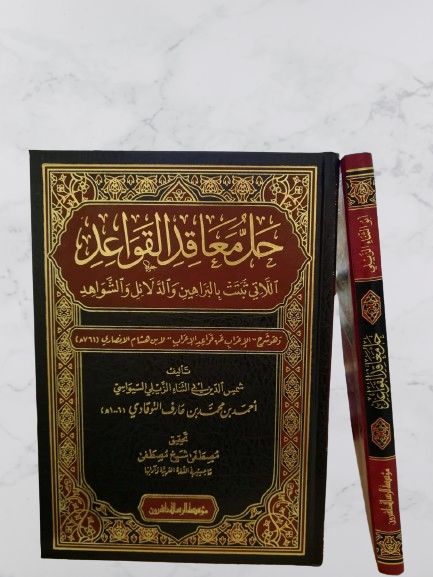 حل معاقد القواعد
اللاتي ثبتت بالبراهين والدلائل والشواهد
وهو شرح "الإعراب عن قواعد الإعراب" لابن هشام الأنصاري (٧٦١هـ)
تأليف
شمس الدين أبي الثناء الزيلي السيواسي
أحمد بن محمد بن عارف التوقادي (١٠٠٦هـ)
تحقيق
مصطفى شيخ مصطفى
في اللغة العربية وآدابها
مؤسسة الرسالة ناشرون
أبو الثناء الزيلي
حل معاقد القواعد
مؤسسة الرسالة ناشرون